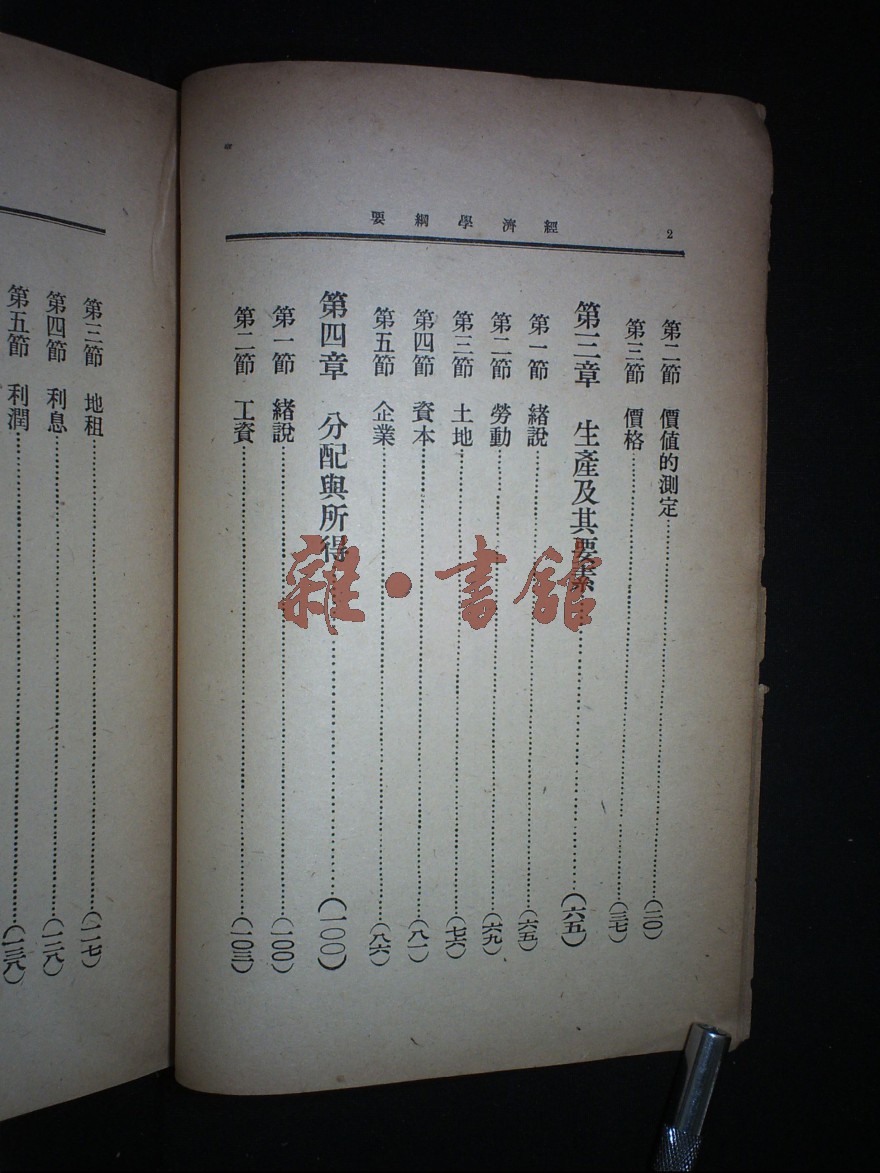 2
經濟學綱要
第二節 價值的測定……(二〇)
第三節 價格……(三七)
第三章 生產及其要素……(六五)
第一節 緒說……(六五)
第二節 勞動……(六九)
第三節 土地……(七六)
第四節 資本……(八一)
第五節 企業……(八六)
第四章 分配與所得……(一〇〇)
第一節 緒說……(一〇〇)
第二節 工資……(一〇三)
第三節 地租……(一一七)
第四節 利息……(一二八)
第五節 利潤……(一三八)
雜·書館